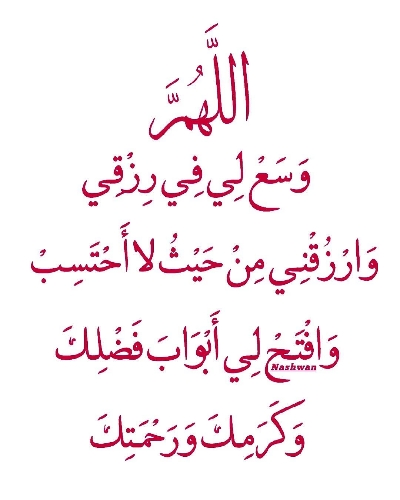 اللَّهُمَّ
وَسَعْ لِي فِي رِزْقِي
وَارْزُقْنِي مِنْ حَيْثُ لا أَحْتَسِبْ
وَافْتَحْ لِي أَبْوَابَ فَضْلِكَ
Nashwan
وَكَرَمِكَ وَرَحْمَتِكَ